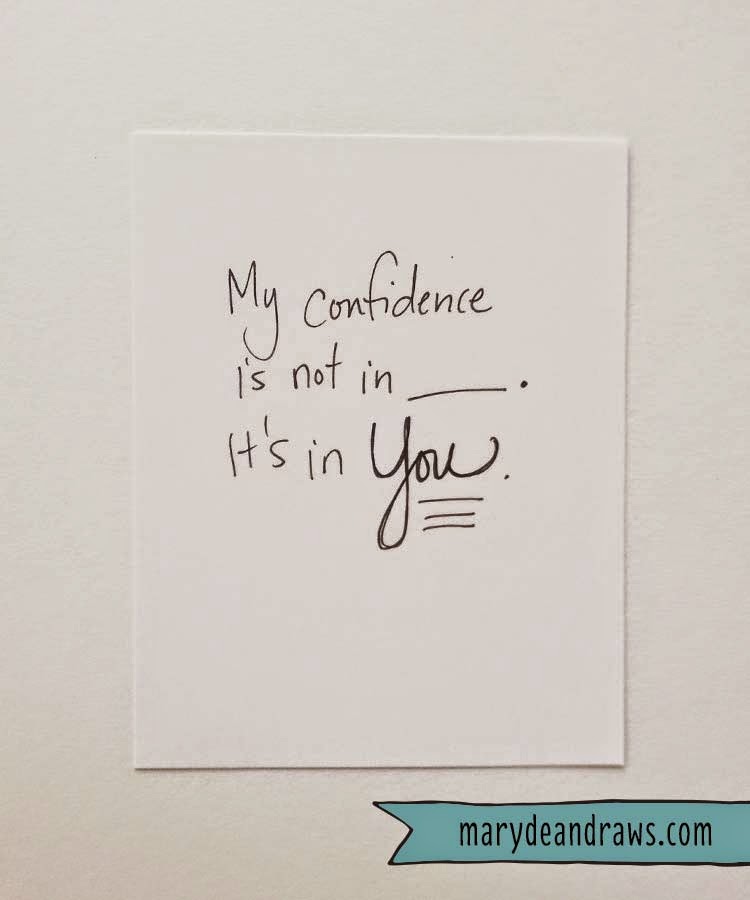 My confidence
is not in ____.
It's in You.
marydeandraws.com